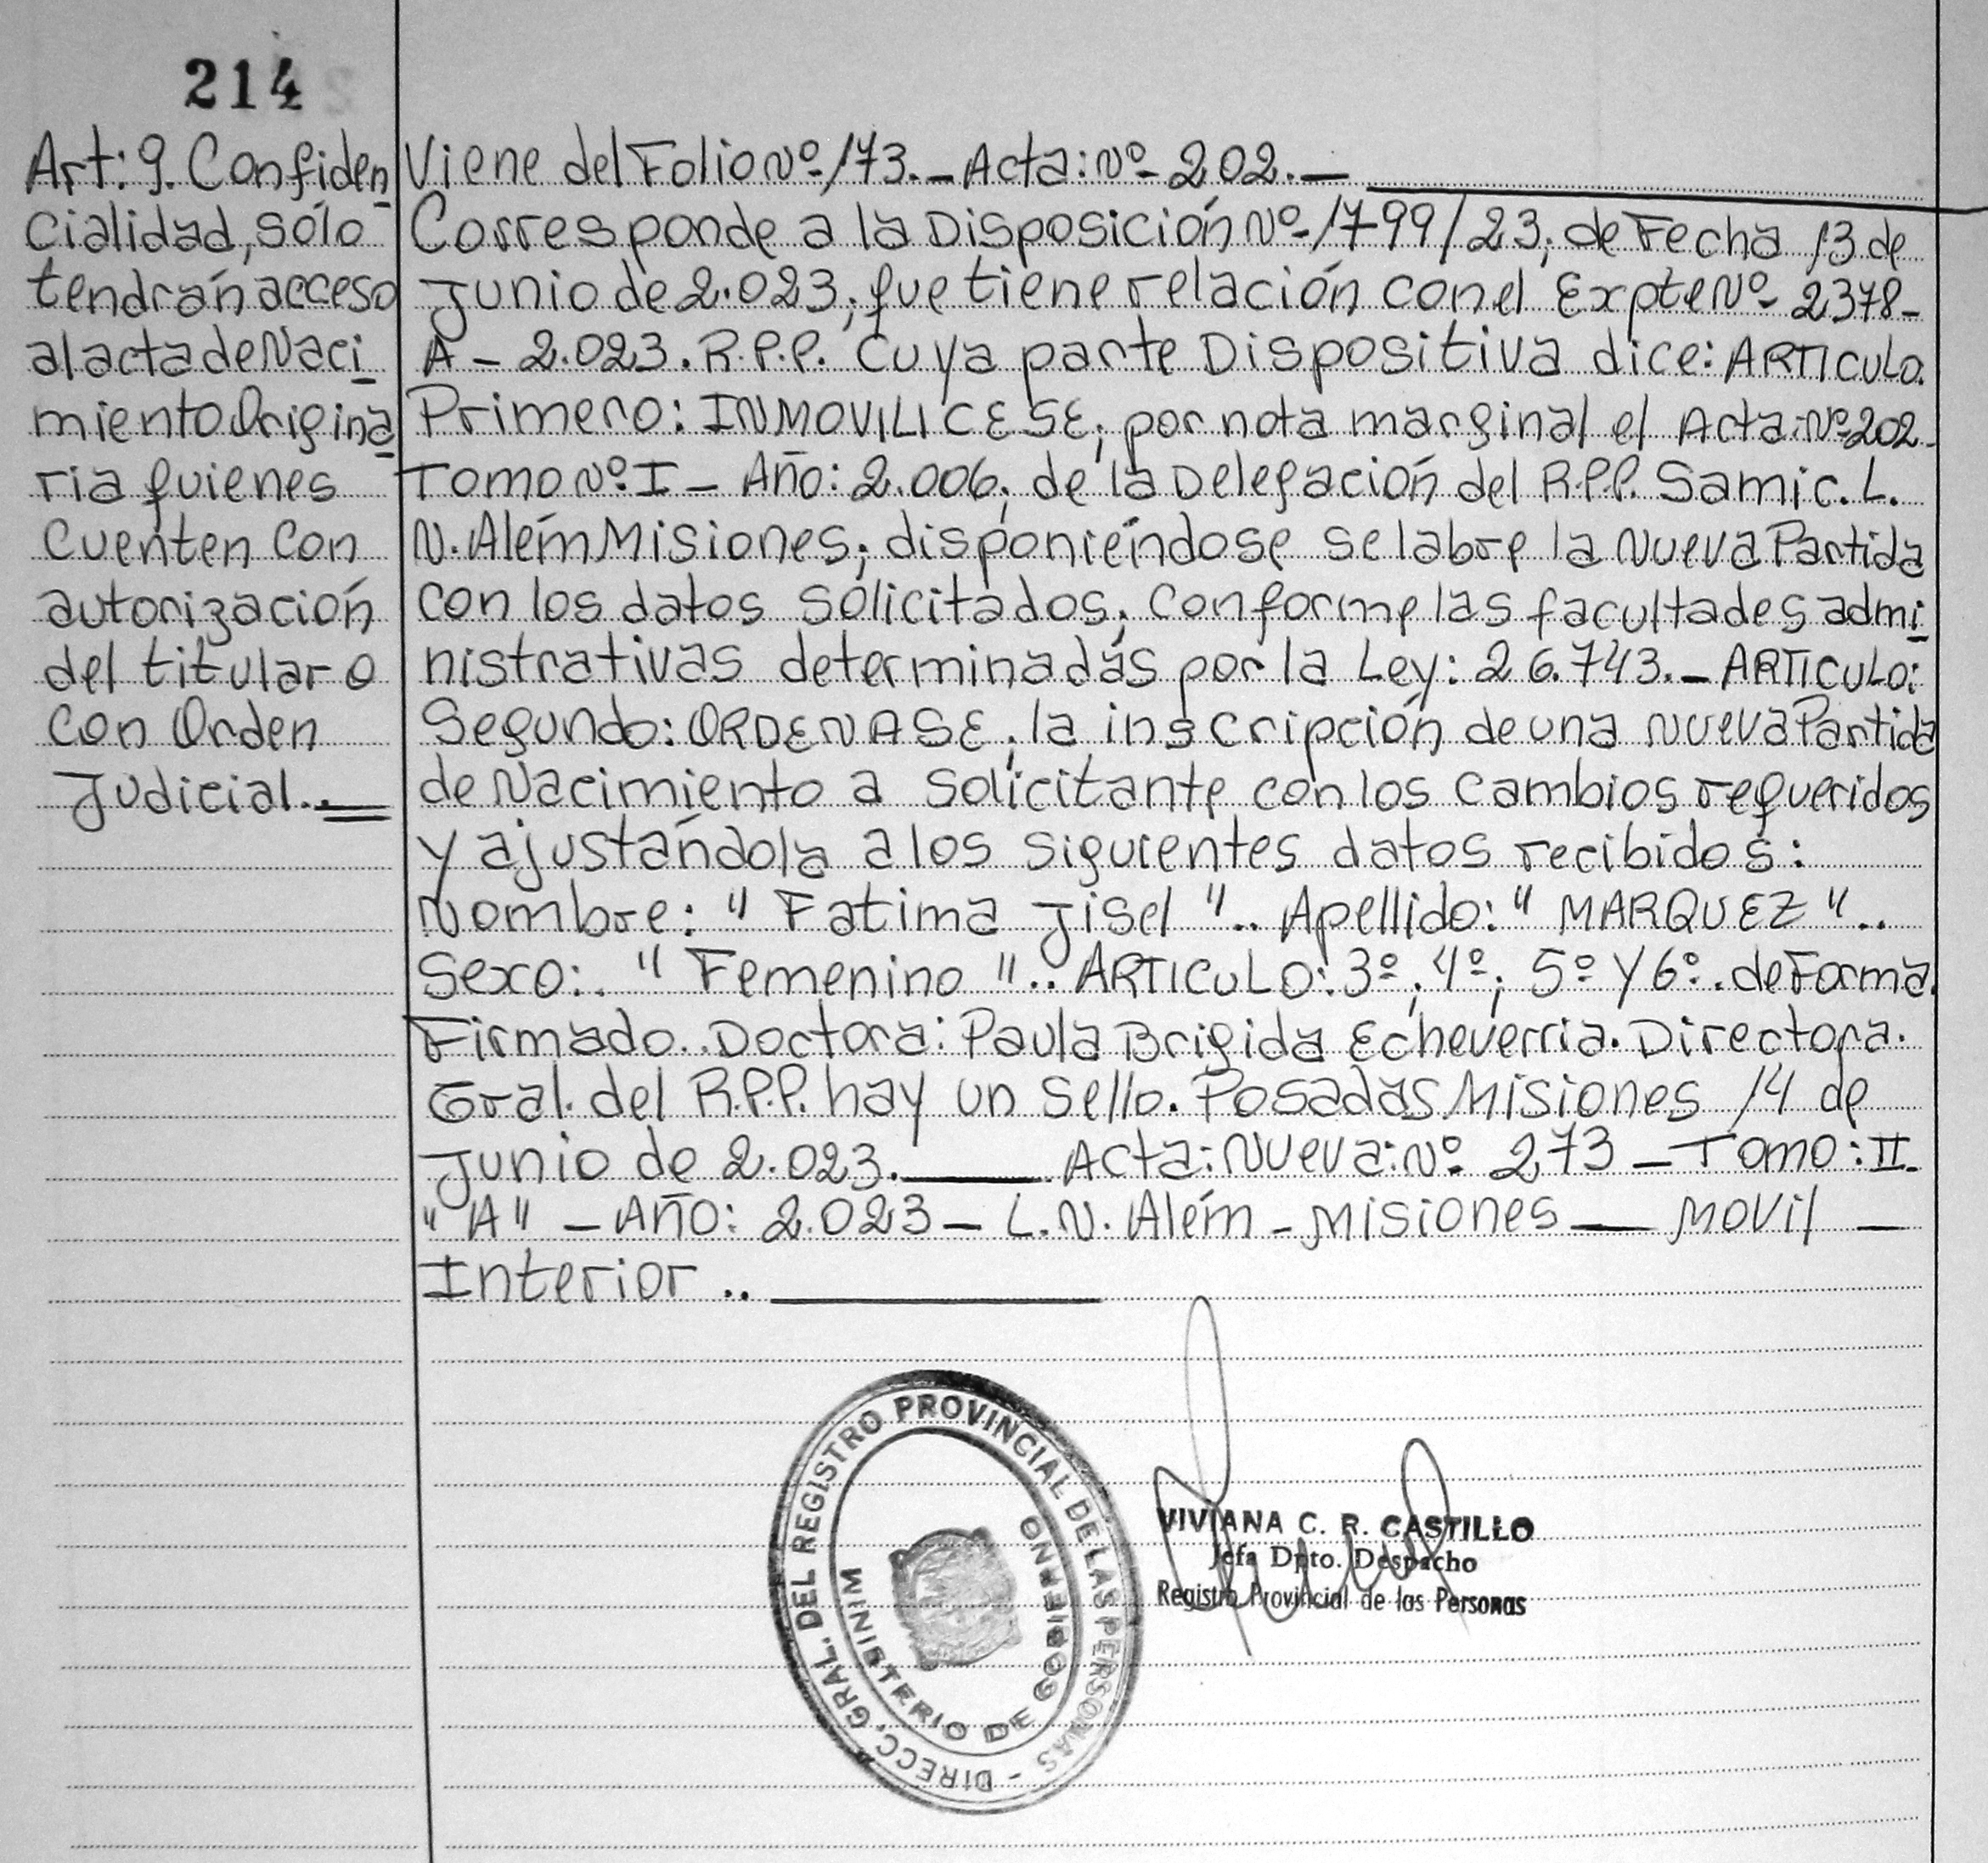 214
Art: 9. Confiden
cialidad, sólo
tendrán acceso
al acta de Naci
miento Origina
ria quienes
Cuenten Con
autorización
del titular o
Con Orden
Judicial..=
Viene del Folio Nº 173.- Acta: Nº 202.-
Corresponde a la Disposición Nº 1799/23, de Fecha 13 de
Junio de 2.023, que tiene relación con el Expte Nº 2378-
A - 2.023. R.P.P. Cuya parte Dispositiva dice: ARTICULO.
Primero: INMOVILICESE, por nota marginal el Acta: Nº 202-
Tomo Nº I - Año: 2.006, de la Delegación del R.P.P. Samic. L.
N. Além Misiones, disponiéndose se labre la Nueva Partida
con los datos Sólicitados, Conforme las facultades admi
nistrativas determinadas por la Ley: 26.743.- ARTICULO:
Segundo: ORDENASE, la inscripción de una Nueva Partida
de Nacimiento a Solicitante con los Cambios requeridos
y ajustándola a los Siguientes datos recibidos:
Nombre: " Fatima Jisel ".. Apellido: " MARQUEZ "..
Sexo:. " Femenino ".. ARTICULO: 3º, 4º, 5º Y 6º. de Forma.
Firmado.. Doctora: Paula Brigida Echeverria. Directora.
Gral. del R.P.P. hay un Sello. Posadas Misiones 14 de
Junio de 2.023.- Acta: Nueva: Nº 273 - Tomo: II-
"A" - AÑO: 2.023 - L.N. Além - Misiones - Movil -
Interior ..
DIRECC. GRAL. DEL REGISTRO PROVINCIAL DE LAS PERSONAS -
MINISTERIO DE GOBIERNO
VIVIANA C. R. CASTILLO
Jefa Dpto. Despacho
Registro Provincial de las Personas